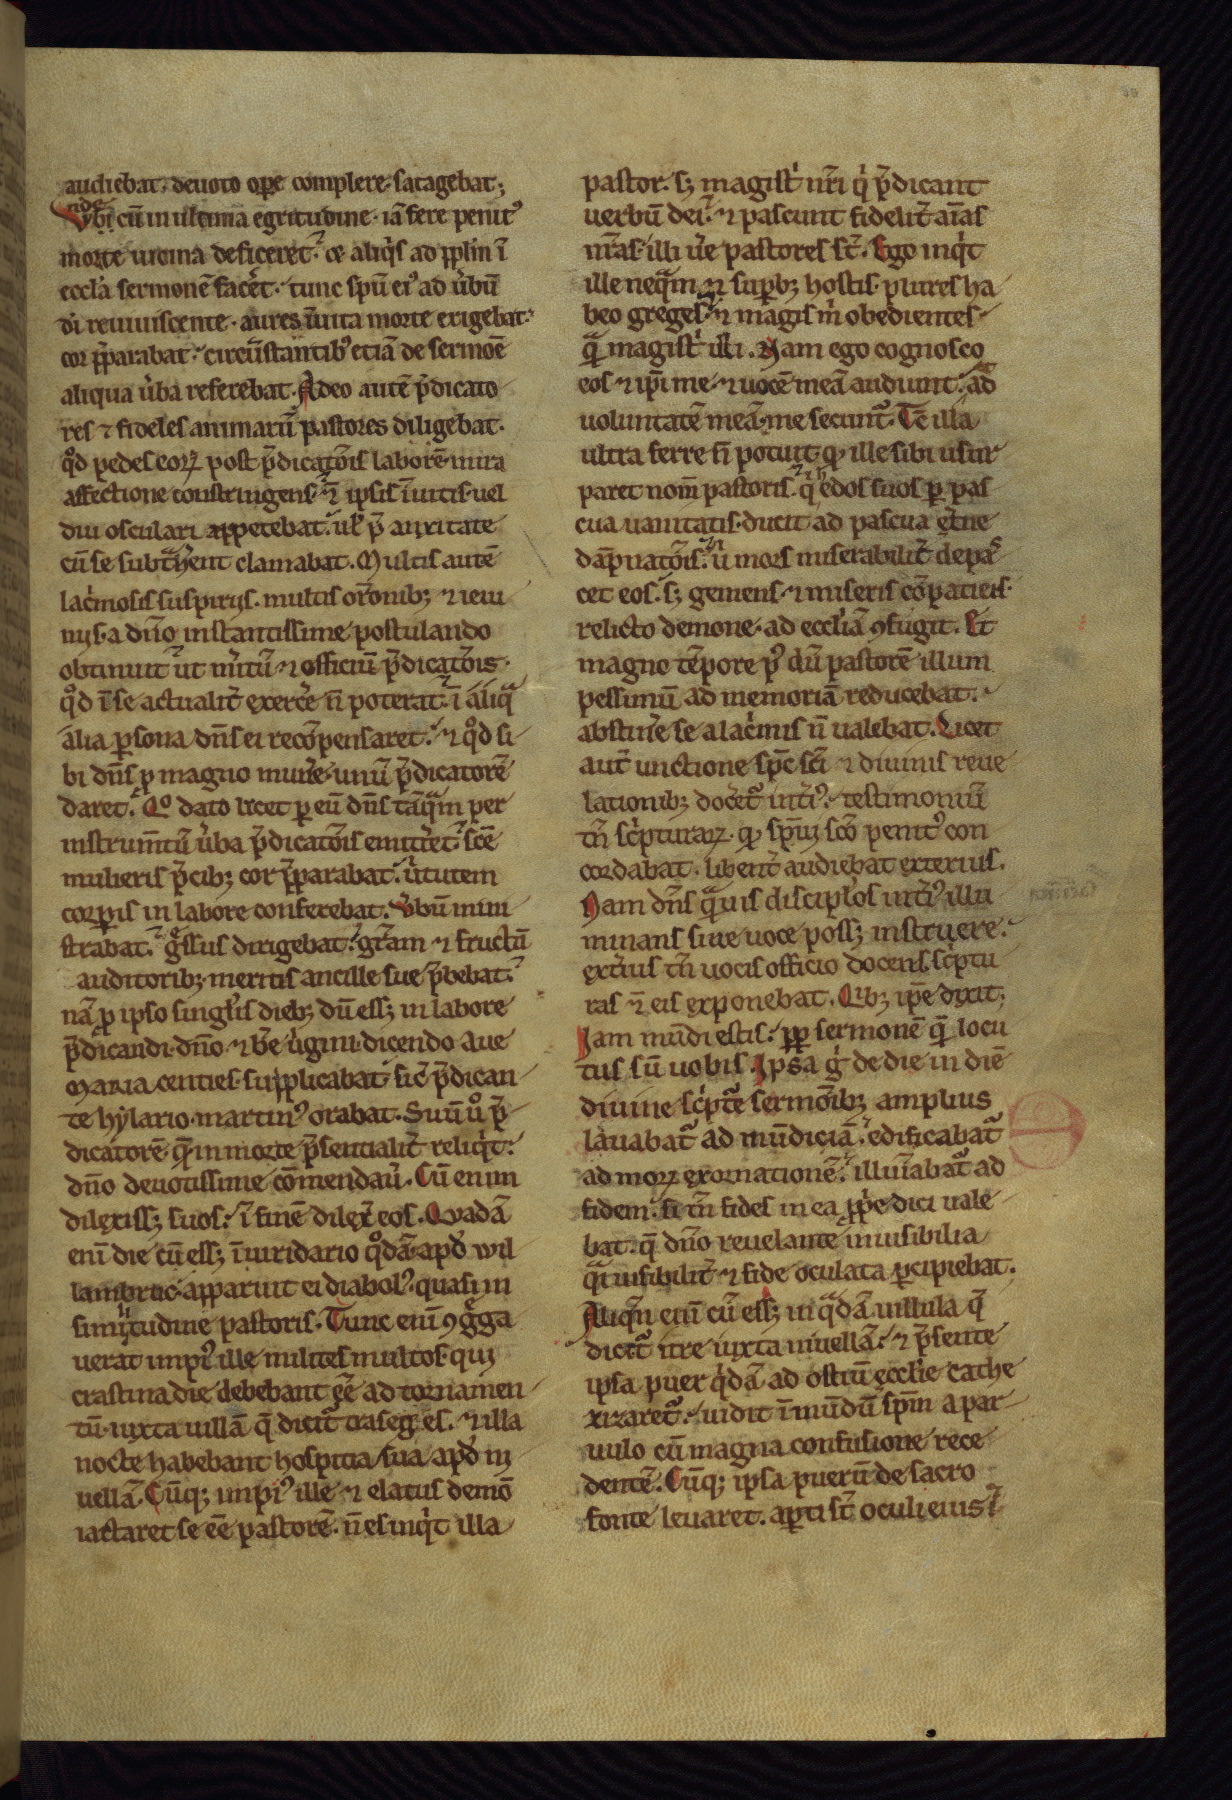 audiebat. deuoto oꝑe complere satagebat;
Vn̄ cū in ultima egritudine. iā fere penitꝰ
morte uicina deficeret. ⁊ aliqͥs ad ppl̄m ī
eccl̓a sermonē facēt. tunc spū eiꝰ ad u̓bū
dī reuiuiscente. aures īuita morte erigebat.
cor p̄parabat. circūstantibꝰ etiā de sermōe
aliqua u̓ba referebat. Adeo autē p̄dicato
res ⁊ fideles animarū pastores diligebat.
qͦd pedes eoꝝ post p̄dicatōis laborē mira
affectione constringens. ⁊ ipsis īuitis uel
diu osculari appetebat. ul̓ p̄ anxitate
cū se subtͣhēnt clamabat. Multis autē
lacͥmosis suspirijs. multis or̄onibꝫ ⁊ ieiu
nijs. a dn̄o instantissime postulando
obtinuit ut m̓itū ⁊ officiū p̄dicatōis.
qͦd ī se actualit̓ exerc̓e n̄ poterat. ī aliqͣ
alia ꝑsona dn̄s ei recōpensaret. ⁊ qͦd si
bi dn̄s ꝓ magno mun̓e. unū p̄dicatorē
daret. Qͦ dato licet ꝑ eū dn̄s tāqͣm per
instrum̄tū u̓ba p̄dicatōis emitt̓et. sc̄e
mulieris p̄cibꝫ cor p̄parabat. u̓tutem
corꝑis in labore conferebat. u̓bū mini
strabat. gͤssus dirigebat. gr̄am ⁊ fructū
auditoribꝫ meritis ancille sue p̄bebat.
nā ꝓ ipso singl̓is diebꝫ dū essꝫ in labore
p̄dicandi. dn̄o ⁊ bē u̓gini. dicendo aue
maria centies. supplicabat. sic̄ p̄dican
te hylario. martinꝰ orabat. Suū uͦ p̄
dicatorē. qͣm in morte p̄sentialit̓ reliqͥt.
dn̄o deuotissime cōmendau̓. Cū enim
dilexissꝫ suos. ī finē dilex̓ eos. Quadā
enī die cū essꝫ ī uiridario qͦdā. apd̓ wil
lambruc. apparuit ei diabolꝰ. quasi in
similitudine pastoris. Tunc enī ꝯgͤga
uerat impiꝰ ille milites multos. qui
crastina die debebant ēe ad tornamen
tū. iuxta uillā q̄ dicit̓ trasegͥes. ⁊ illa
nocte habebant hospitia sua apd̓ ni
uellā. Cūqꝫ impiꝰ ille ⁊ elatus demō
iactaret se ēe pastorē. n̄ es inqͥt illa
pastor. sꝫ magist̓ nr̄i qͥ p̄dicant
uerbū dei. ⁊ pascunt fidelit̓ aīas
nr̄as. illi u̓e pastores st̄. Ego inqͥt
ille neqͣm ⁊ suꝑbꝫ hostis. plures ha
beo greges. ⁊ magis m̓ obedientes.
qͣm magist̓ illi. Nam ego cognosco
eos ⁊ ip̄i me. ⁊ uocē meā audiunt. ⁊ ad
uoluntatē meā. me secunt̓. Tē illa
ultra ferre n̄ potuit. ꝙ ille sibi usur
paret nom̄ pastoris. qͥ hedos suos ꝑ pas
cua uanitatis. ducit ad pascua et̓ne
dāpnatōis. u̓ mors miserabilit̓ depas
cet eos. sꝫ gemens. ⁊ miseris cōpatiens.
relicto demone. ad eccl̓iā ꝯfugit. Et
magno tēpore pꝰ dū pastorē illum
pessimū ad memoriā reducebat.
abstin̓e se a lacͥmis n̄ ualebat. Licet
aut̓ unctione spc̄ sc̄i ⁊ diuinis reue
lationibꝫ doc̓et̓ int̓iꝰ. testimoniū
tn̄ scͥpturaꝝ. ꝙ spiui sc̄o penitꝰ con
cordabat. libent̓ audiebat exterius.
Nam dn̄s qͣmuis discipl̓os int̓iꝰ illu
minans siue uoce possꝫ instruere.
ext̓ius tn̄ uocis officio docens. scͥptu
ras ⁊ eis exponebat. Qibꝫ ip̄e dixit;
Iam mūdi estis. ꝓpt̓ sermonē qͣm locu
tus sū uobis. Ipsa gͥ de die in diē
diuine scͥpt̓e sermōibꝫ amplius
lauabat̓ ad mūdiciā. edificabat̓
ad moꝝ exornationē. illuīabat̓ ad
fidem. si tn̄ fides in ea ꝓp̓e dici uale
bat. q̄ dn̄o reuelante inuisibilia
qͣi uisibilit̓ ⁊ fide oculata ꝑcipiebat.
Aliqn̄ enī cū essꝫ in qͣdā uillula q̄
dicit̓ itre iuxta niuellā. ⁊ p̄sente
ipsa puer qͥdā ad ostiū eccl̓ie cathe
xizaret̓. uidit īmūdū spm̄ a par
uulo cū magna confusione rece
dentē. Cūqꝫ ipsa puerū de sacro
fonte leuaret. aꝑti st̄ oculi eius